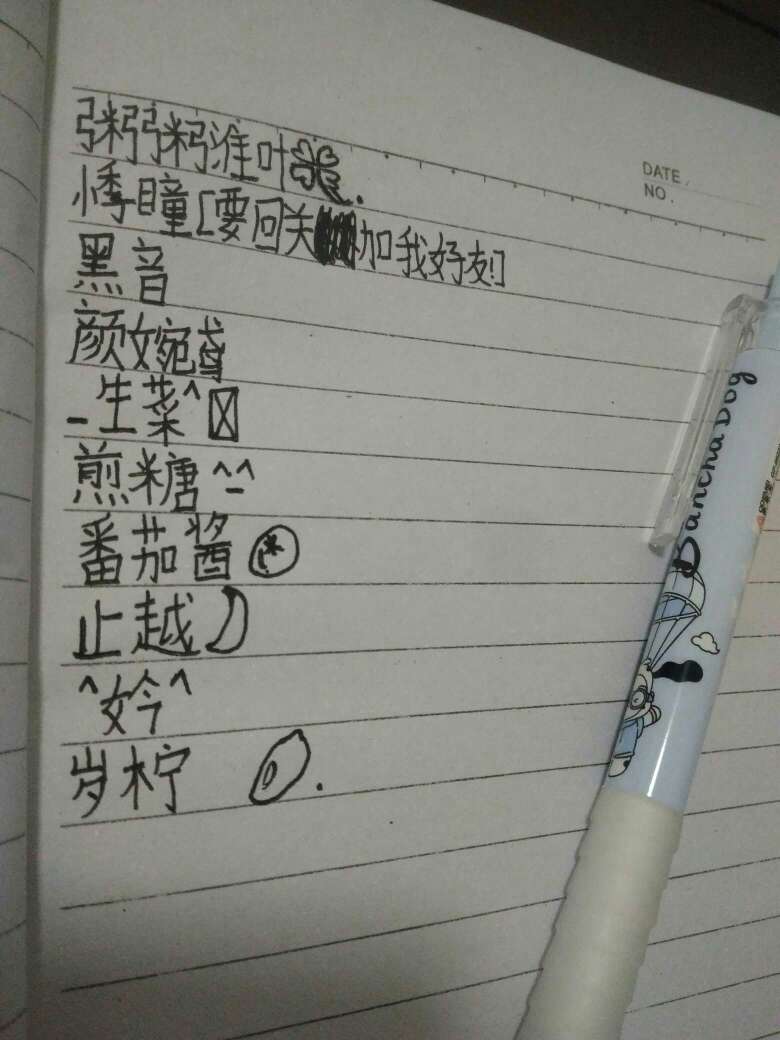 粥粥粥淮叶
悸瞳[要回关加我好友!]
黑音
颜婉鸢
_生菜^
煎糖^-^
番茄酱
止越
^妗^
岁柠
DATE.
NO.
Bancha Dog